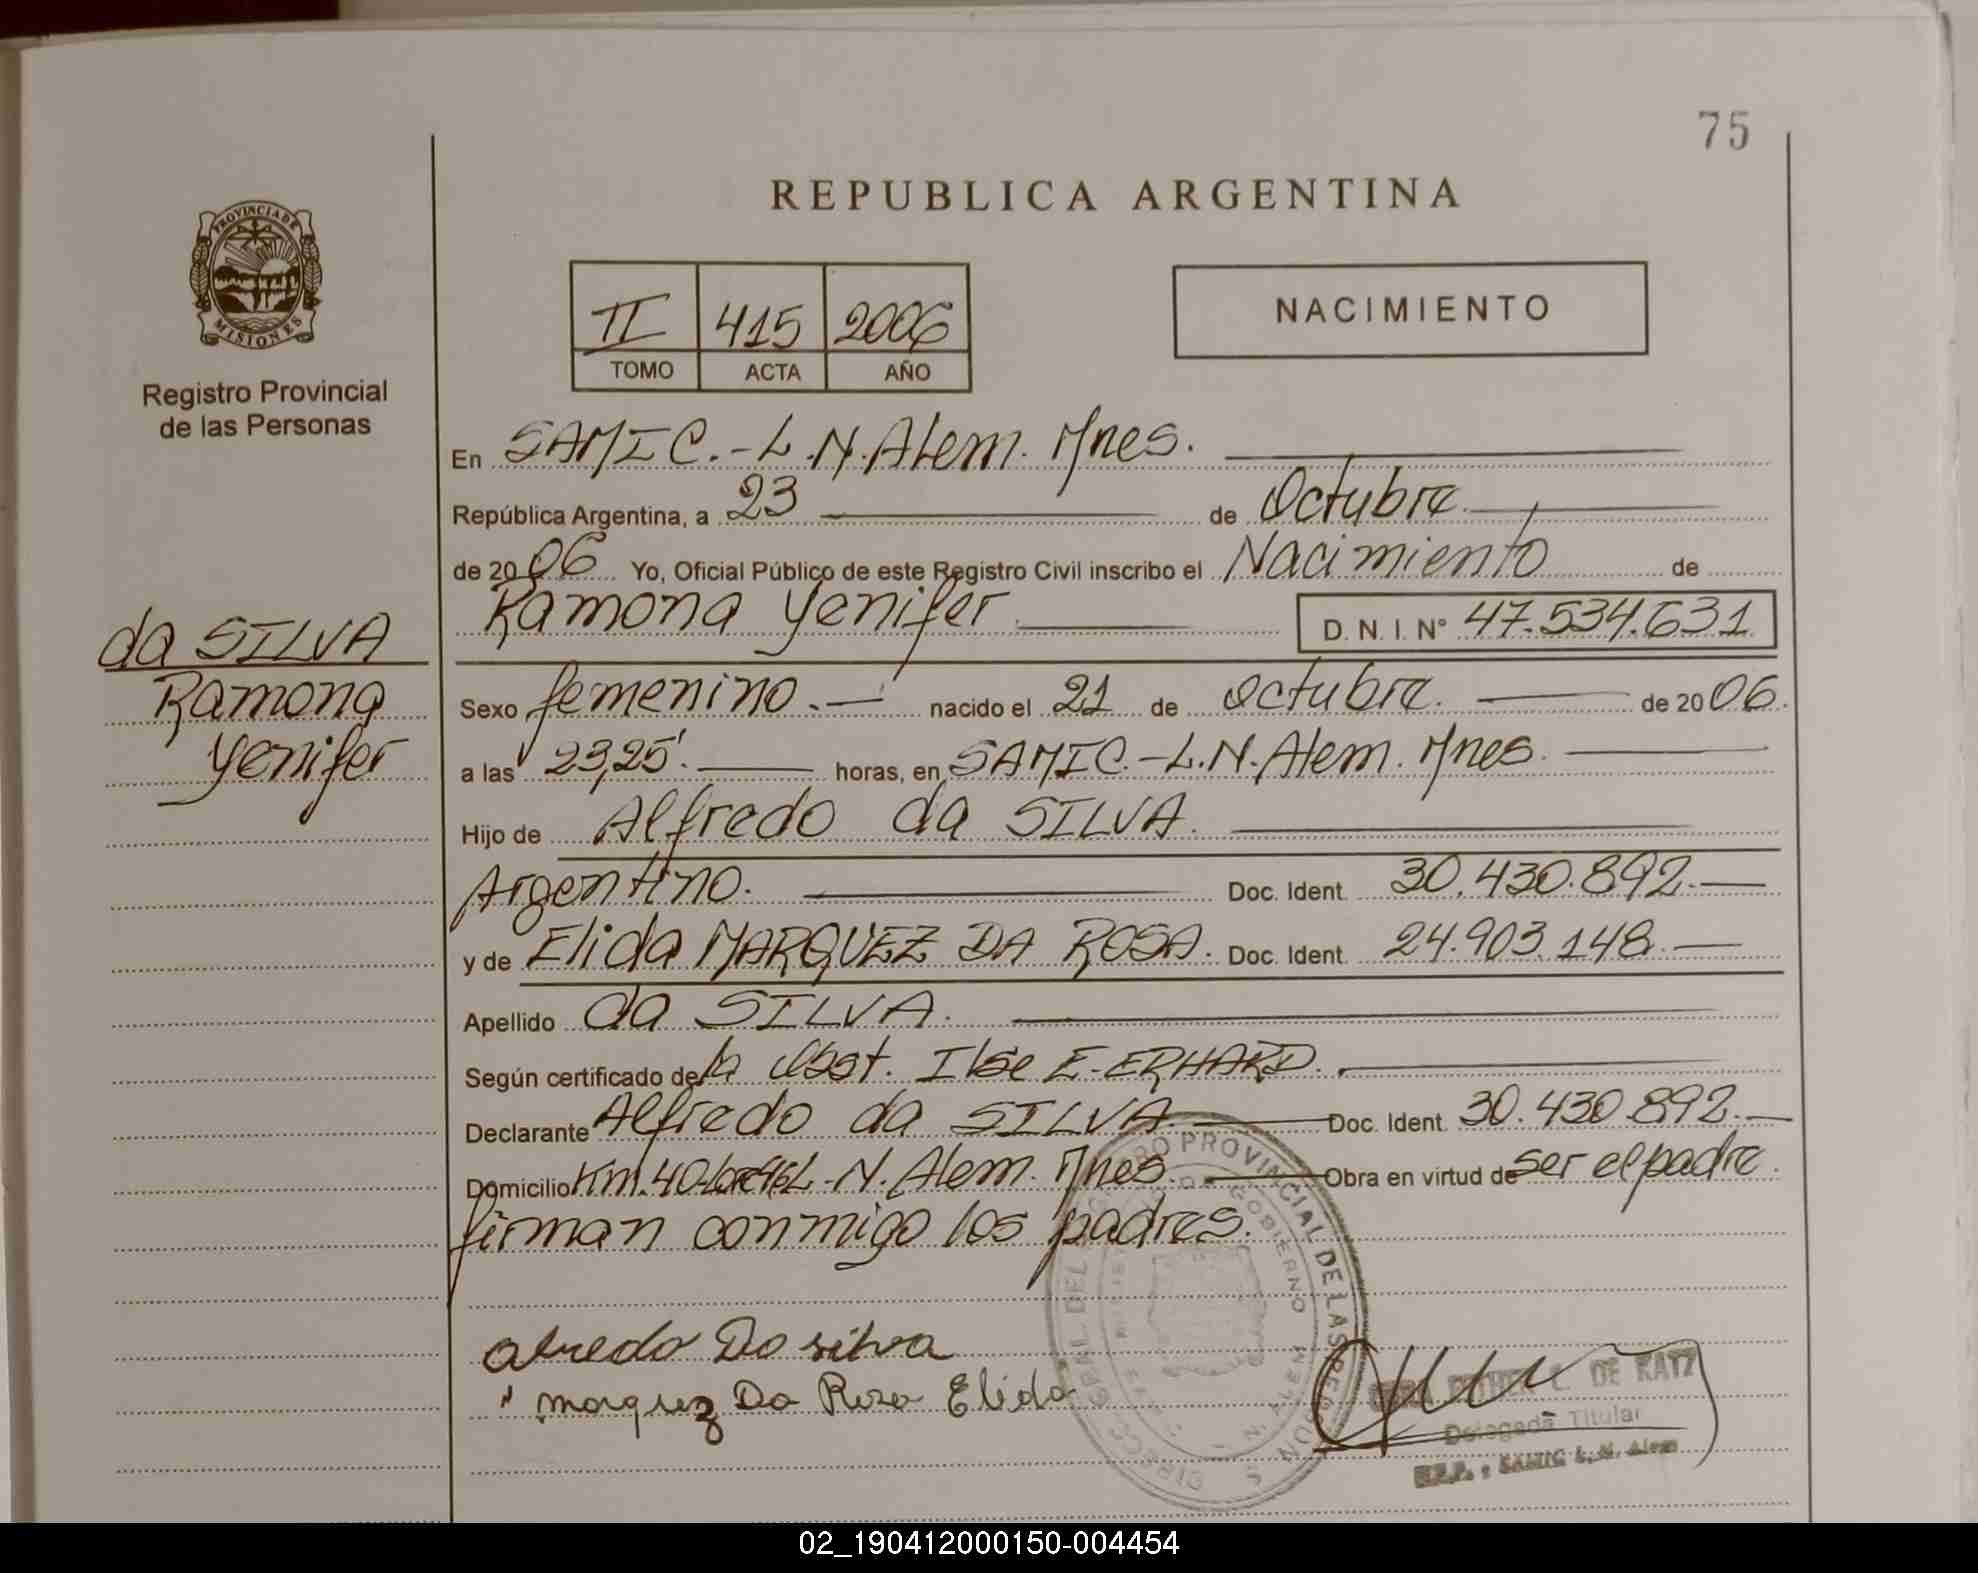 75
REPUBLICA ARGENTINA
PROVINCIA DE
MISIONES
Registro Provincial
de las Personas
II 415 2006
TOMO ACTA AÑO
NACIMIENTO
En SAMIC.-L.N.Alem. Mnes.
República Argentina, a 23 de Octubre
de 2006 Yo, Oficial Público de este Registro Civil inscribo el Nacimiento de
Ramona Yenifer D. N. I. Nº 47.534.631
da SILVA
Ramona
Yenifer
Sexo femenino.- nacido el 21 de Octubre. de 2006.
a las 23,25'. horas, en SAMIC.-L.N.Alem. Mnes.
Hijo de Alfredo da SILVA.
Argentino. Doc. Ident. 30.430.892.-
y de Elida MARQUEZ DA ROSA. Doc. Ident. 24.903.148.-
Apellido da SILVA.
Según certificado de la Obst. Ilse E. ERHARD.
Declarante Alfredo da SILVA. Doc. Ident. 30.430.892.-
Domicilio Km. 40 L.N. Alem. Mnes. Obra en virtud de ser el padre.
firman conmigo los padres.
alredo Da silva
marquez Da Rosa Elida
PROVINCIAL DE LAS PERSONAS
DE GOBIERNO
N. ALEM
DE KATZ
Delegada Titular
R.P.P. - SAMIC L.N. Alem
02_190412000150-004454